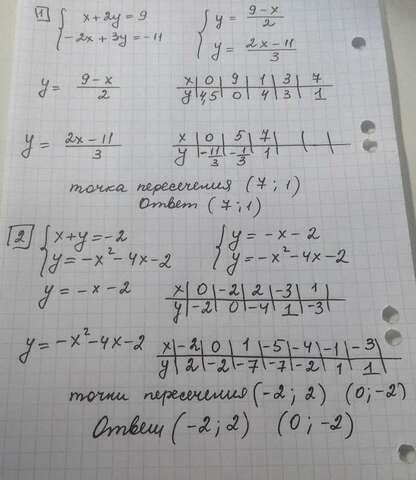 1) { x+2y=9 { y= 9-x/2
-2x+3y=-11 y= 2x-11/3
y= 9-x/2 x|0|9|1|3|7
y|4,5|0|4|3|1
y= 2x-11/3 x|0|5|7| |
y|-11/3|-1/3|1| |
точка пересечения (7;1)
Ответ (7;1)
2 { x+y=-2 { y=-x-2
y=-x²-4x-2 y=-x²-4x-2
y=-x-2 x|0|-2|2|-3|1|
y|-2|0|-4|1|-3|
y=-x²-4x-2 x|-2|0|1|-5|-4|-1|-3
y|2|-2|-7|-7|-2|1|1
точки пересечения (-2;2) (0;-2)
Ответ (-2;2) (0;-2)